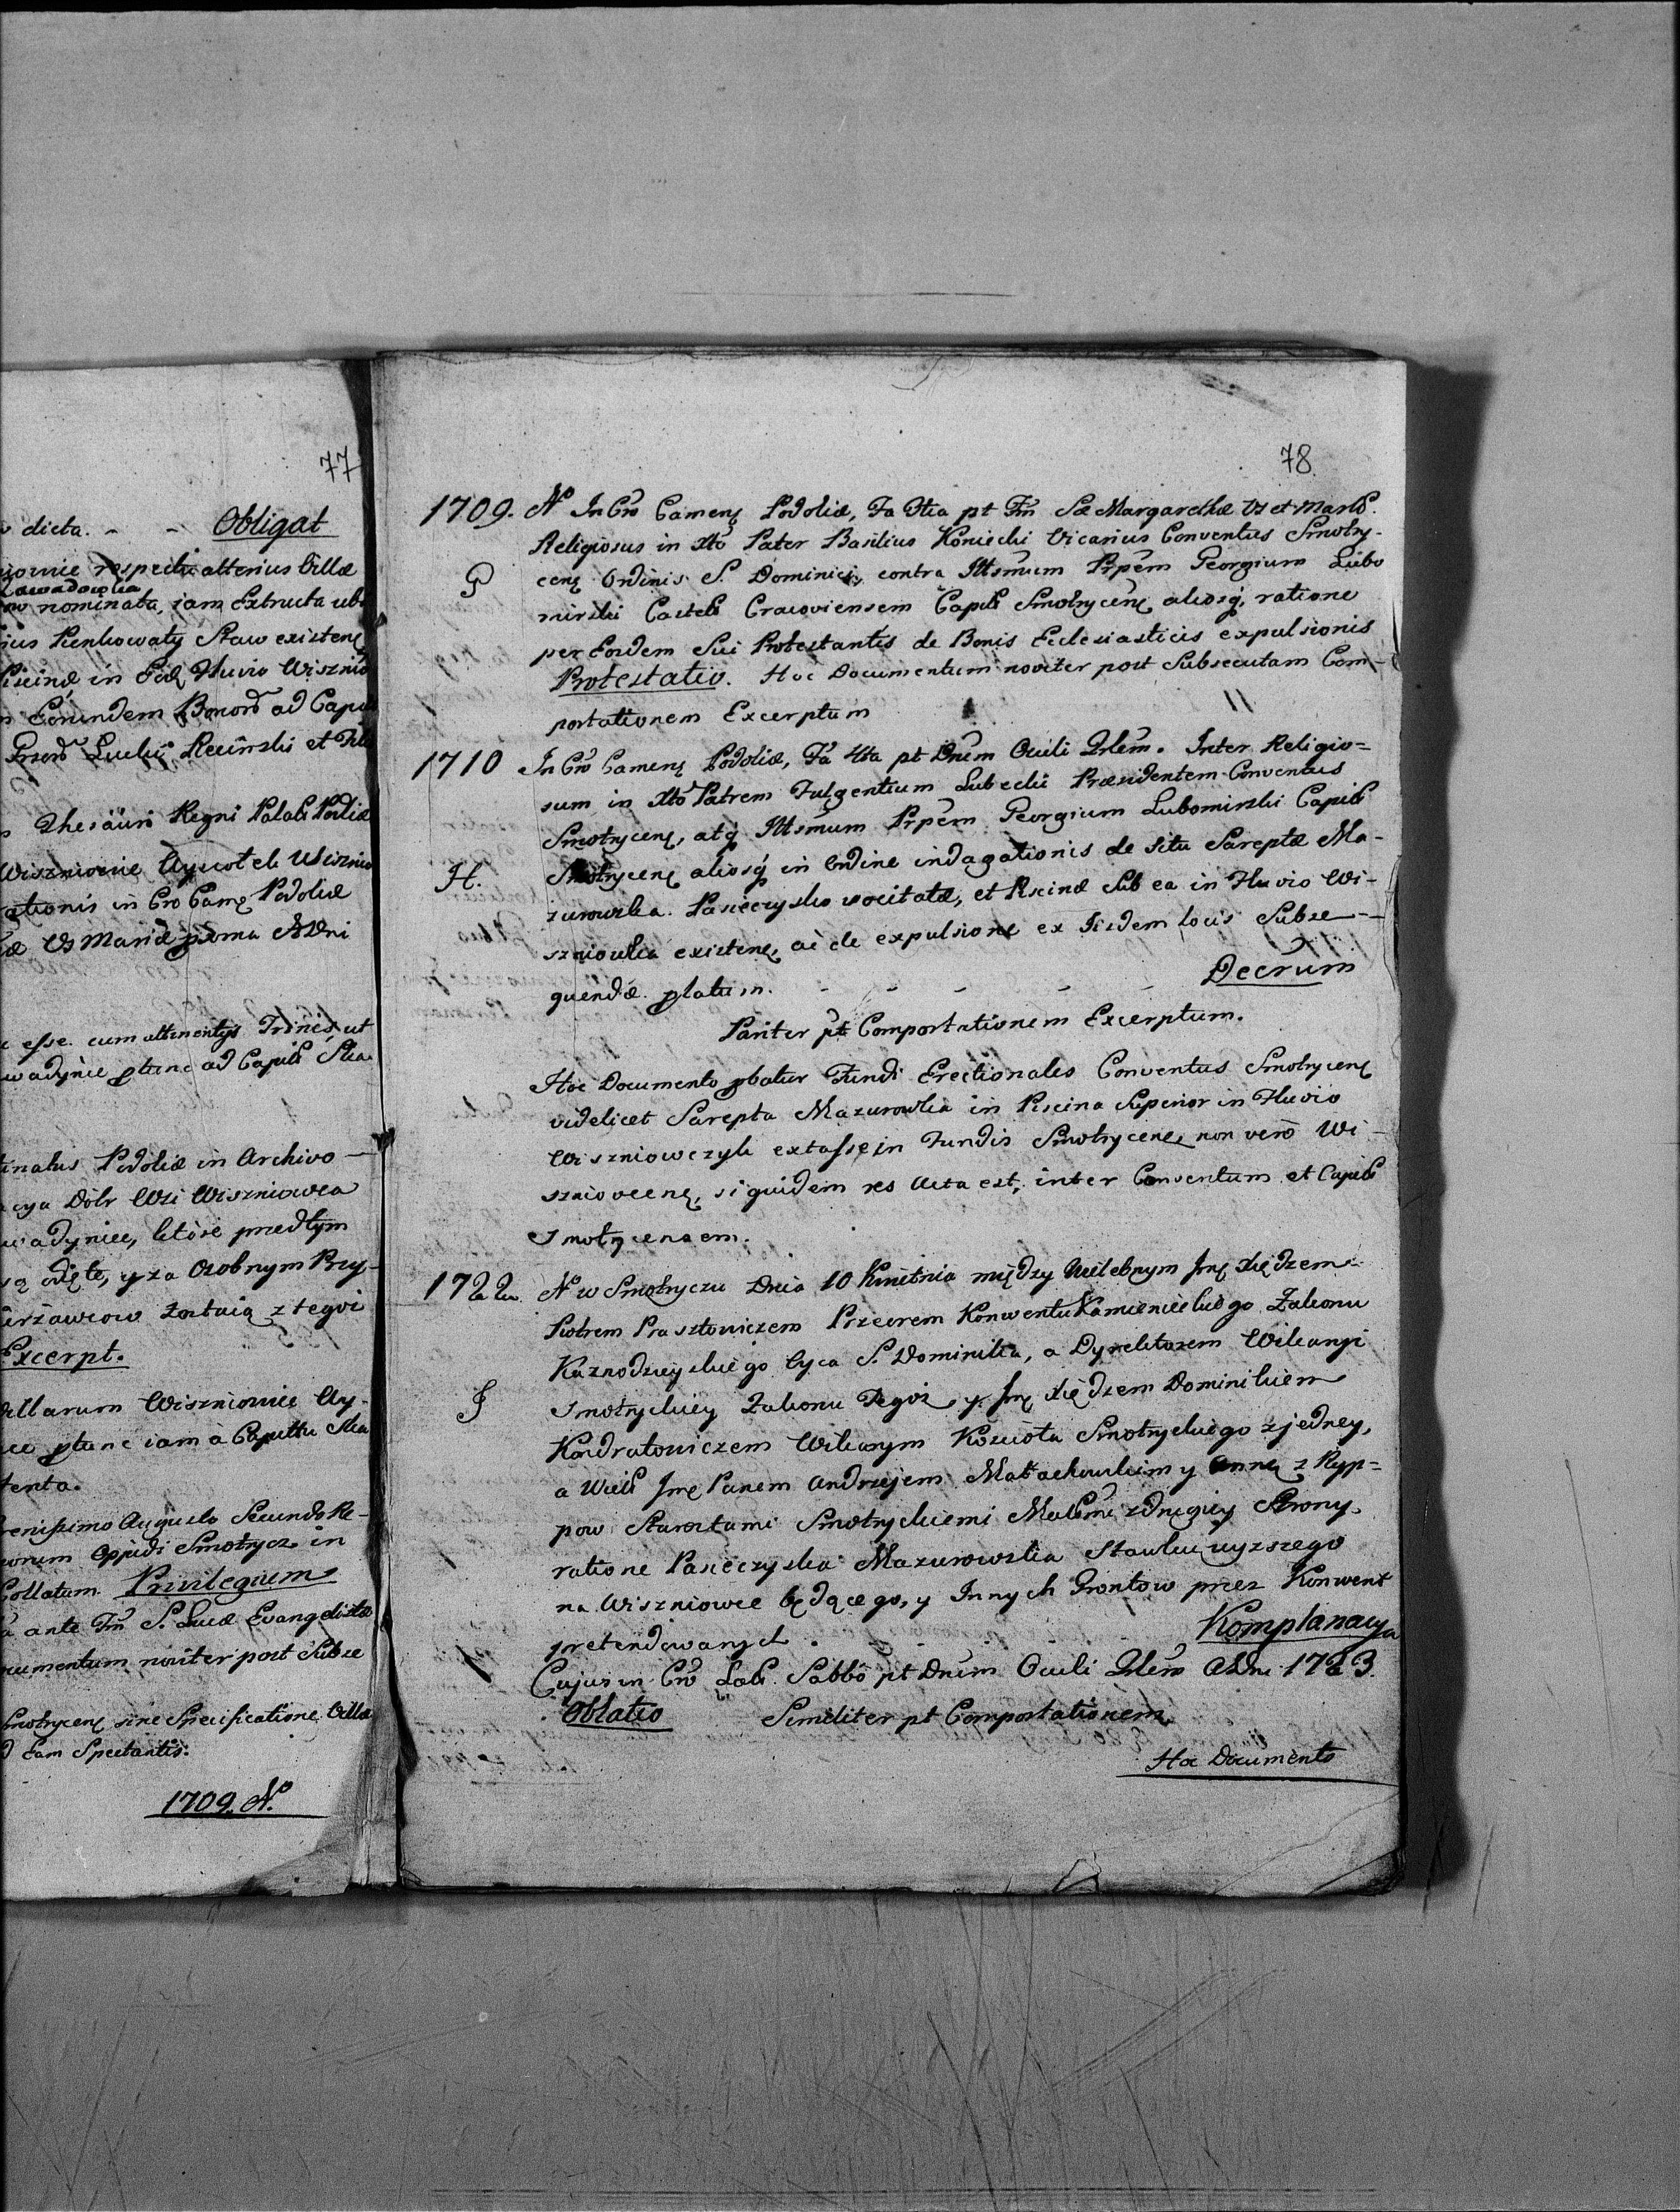 77
dicta. - - Obligat
respectu alterius Villæ
Zawadowka
nominata, iam Extructa ubi
Pienkowaty Staw existen
Piscinæ in Eod Fluvio Wisznio
Eorundem Bonor ad Capit
Recinski et
Thesauri Regni Palat Podliæ
Wiszniowie
ationis in Cro Camę Podoliæ
Mariæ prima ADni
esse cum attinentijs Trinis, ut
wadyńce ptunc ad Capit
inatus Podoliæ in Archivo
cya Dobr Wsi Wiszniowca
wadyniec, ktore przedtym
są wzięte, y za Osobnym Przy-
erżawcow zostaią z tego
Excerpt.
Villarum Wiszniowie
ptunc iam à Capttu
tenta.
renissimo Augusto Secundo Re-
orum Oppidi Smotrycz in
Collatum Privilegium
ante Fm S. Lucæ Evangelistæ
cumentum noviter post Subse
Smotrycenę sine Specificatione Villæ
Eam Spectantis.
1709. N.
78.
1709. N In Cro Camenę Podoliæ, Fa 3tia pt Fm Sæ Margarethæ Vs et Mart.
Religiosus in Xto Pater Basilius Koniecki Vicarius Conventus Smotry-
G cenę Ordinis S. Dominici, contra Illsmum Prpem Georgium Lubo
mirski Castell Cracoviensem Capit Smotrycenę aliosq, ratione
per Eosdem Sui Protestantis de Bonis Ecclesiasticis expulsionis
Protestatio. Hoc Documentum noviter post Subsecutam Com-
portationem Excerptum
1710 In Cro Camenę Podoliæ, Fa 4ta pt Dnem Oculi Qdlem. Inter Religio=
sum in Xto Patrem Fulgentium Lubecki Præsidentem Conventus
Smotrycenę, atq Illsmum Prpem Georgium Lubomirski Capit
H. Smotrycenę aliosq in Ordine indagationis de situ Sareptæ Ma-
zurowka Pasieczysko vocitatæ, et Piscinæ Sub ea in Fluvio Wi-
szniowka existenę, ac de expulsione ex Iisdem locis Subse-
quendæ platum. - - - - - Decrum
Pariter pt Comportationem Excerptum.
Hoc Documento pbatur Fundi Erectionales Conventus Smotrycenę
videlicet Sarepta Mazurowka in Piscina Superior in Fluvio
Wiszniowczyk extasse in Fundis Smotrycenę, non vero Wi-
szniovcenę, siquidem res Acta est, inter Conventum et Capit
Smotrycensem.
1722 N w Smotryczu Dnia 10 Kwietnia między Wielebnym Jmę Xiędzem
Piotrem Prasztowiczem Przeorem Konwentu Kamienieckiego Zakonu
Kaznodzieyskiego Oyca S. Dominika, a Dyrektorem Wikaryi
J Smotryckiey Zakonu Tegoż y Jmę Xiędzem Dominikiem
Kondratowiczem Wikarym Kościoła Smotryckiego zjedney,
a Wiel Jmę Panem Andrzejem Małachowskim y Anną z Ryp=
pow Starostami Smotryckiemi Małżmi zdrugiey Strony
ratione Pasieczyska Mazurowska Stawku wyzszego
na Wiszniowce będącego, y Innych Grontow przez Konwent
pretendowanych - - - Komplanacya
Cujus in Cro Sabbo pt Dnem Oculi Qdlem ADni 1723.
Oblatio Similiter pt Comportationem
Hoc Documento